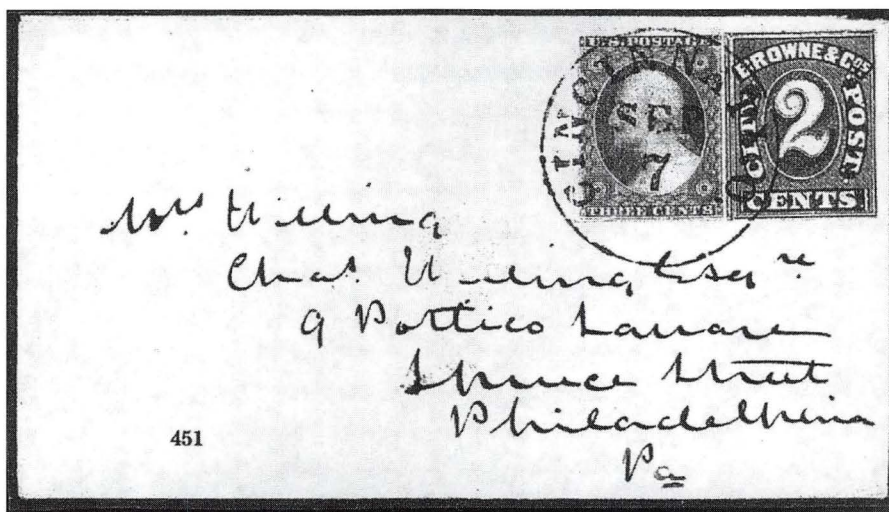 U.S. POSTAGE
THREE CENTS
BROWNE & COS
CITY POST
2
CENTS
CINCINNATI
SEP
7
Mrs Willing
Chas Willing Esqre
9 Portico Square
Spruce Street
Philadelphia
Pa
451